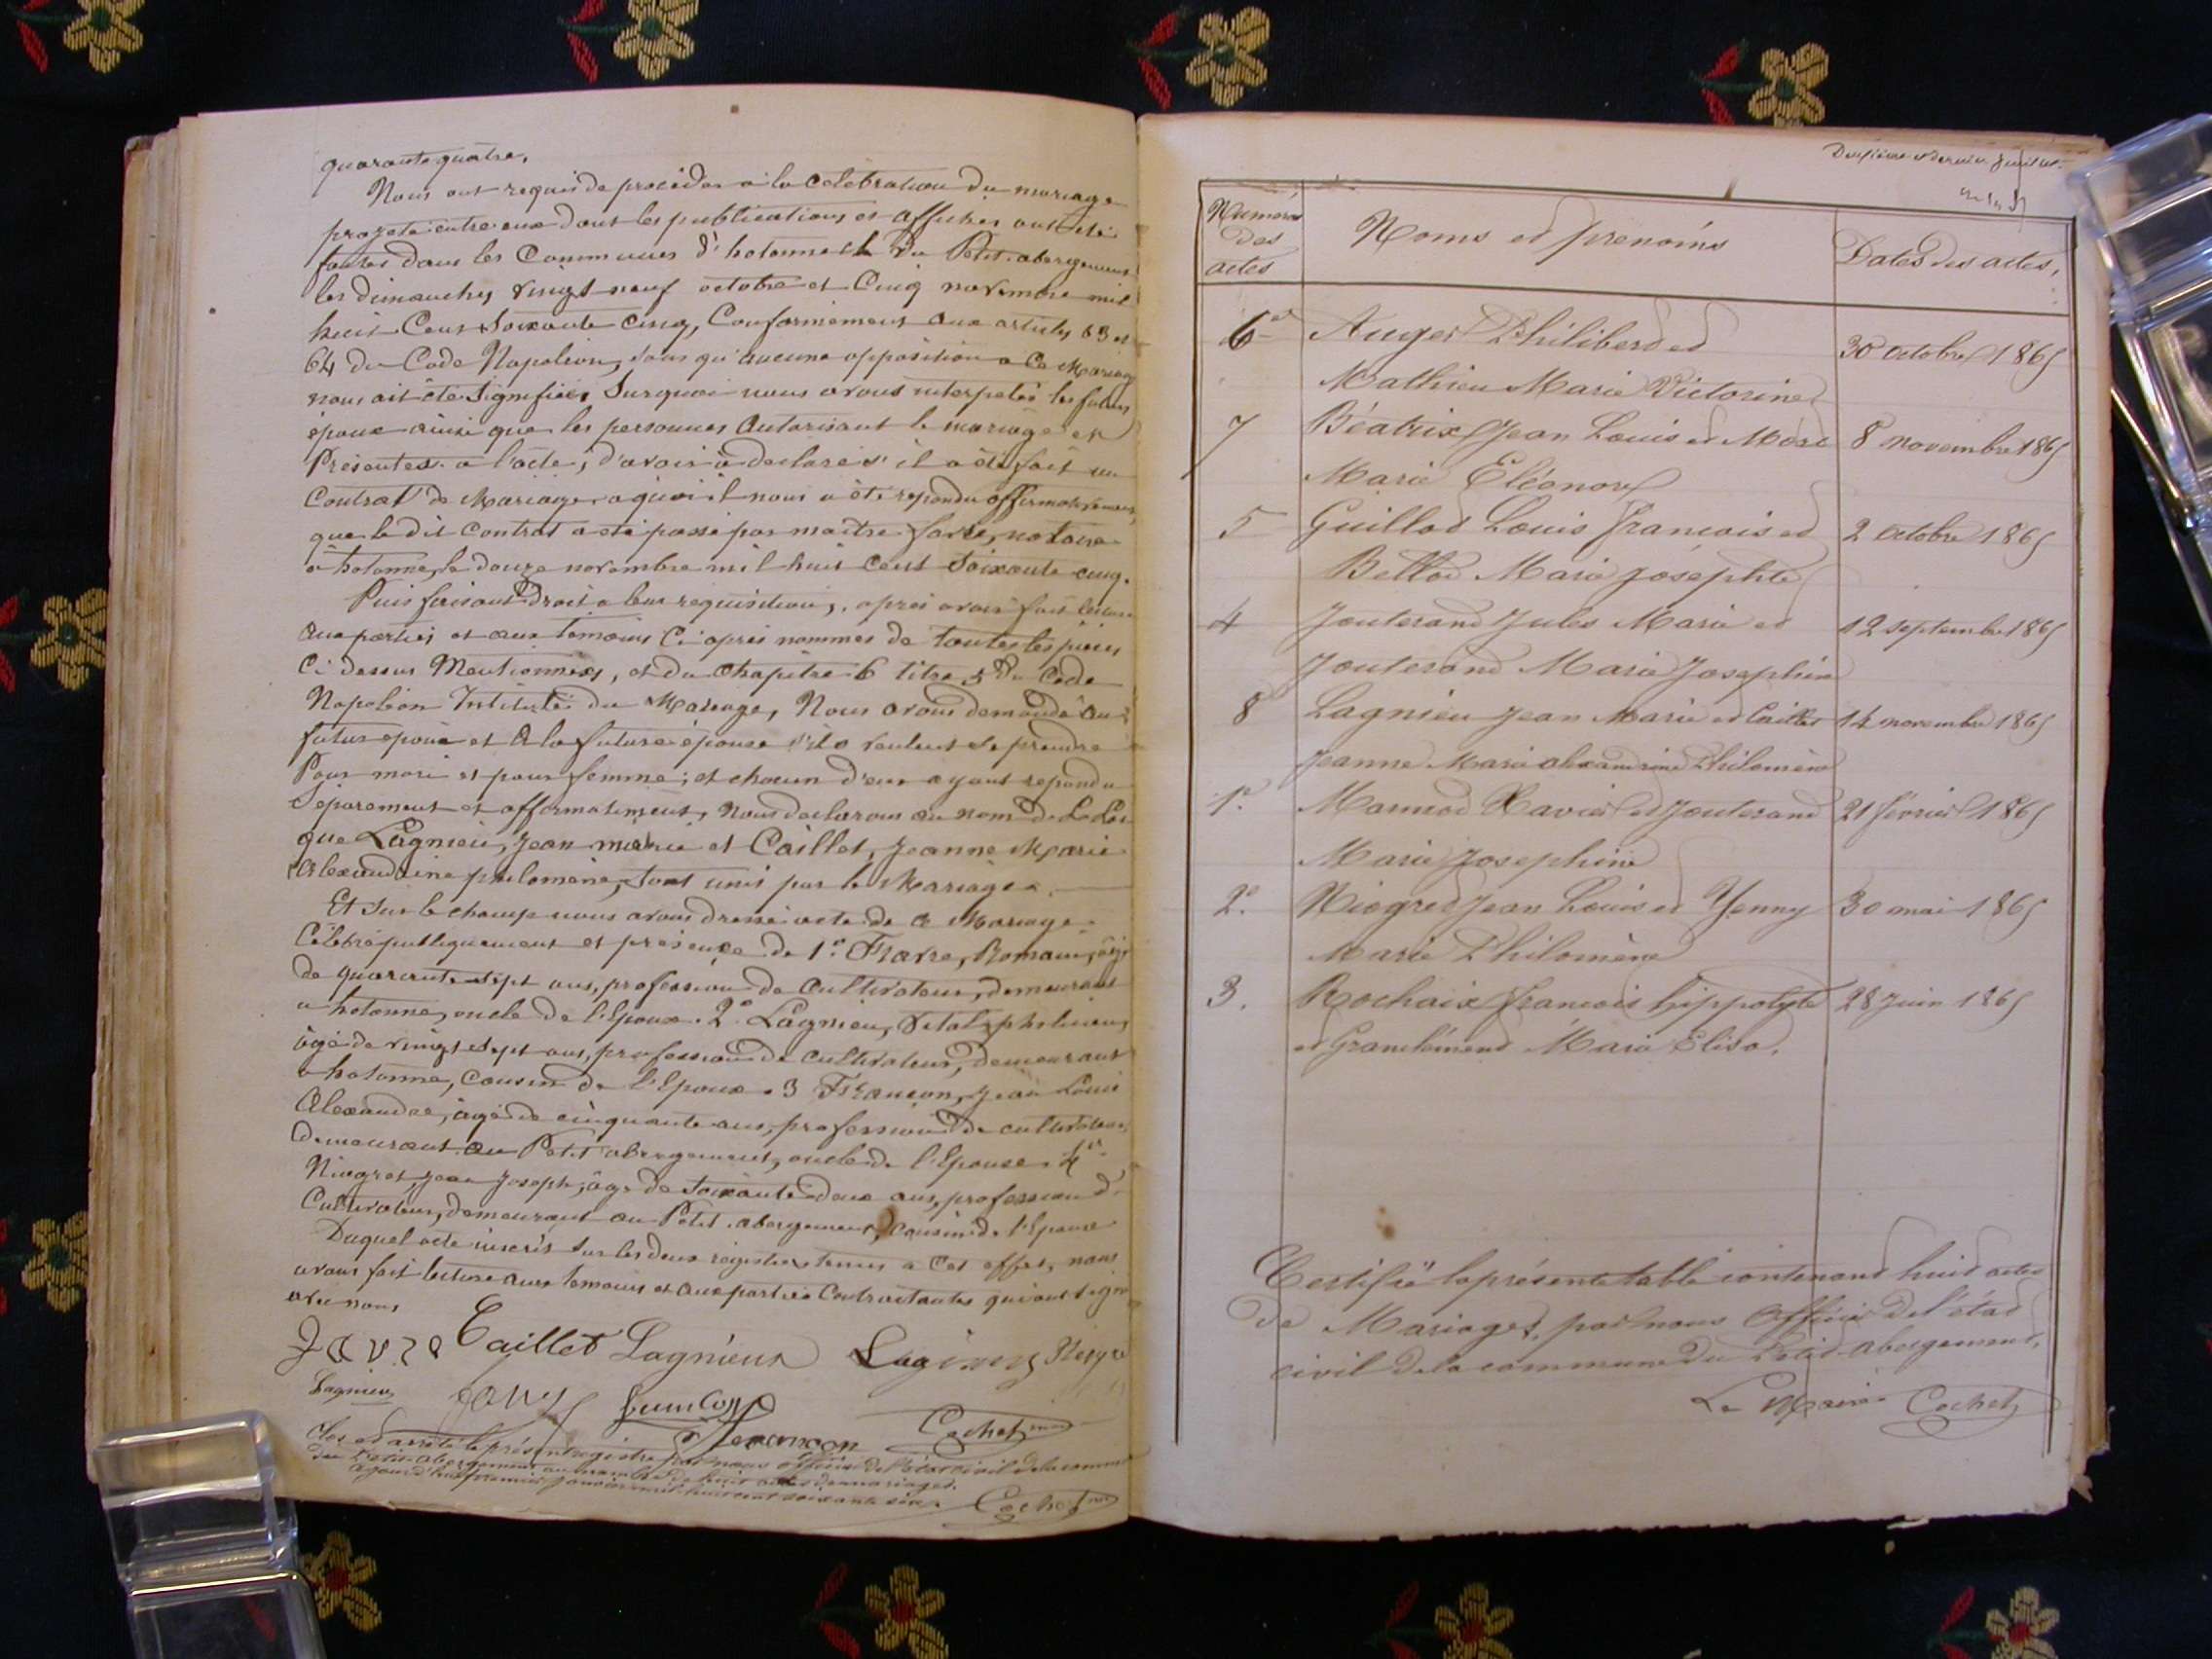 quarante quatre.
Nous ont requis de procéder à la célébration du mariage
projeté entre eux dont les publications et affiches ont été
faites dans les Communes d'hotonne et du Petit-abergement
les dimanches vingt neuf octobre et Cinq novembre mil
huit Cent Soixante Cinq, Conformément aux articles 63 et
64 du Code Napoléon, sans qu'aucune opposition a Ce Mariage
nous ait été signifiée, Surquoi nous avons interpelés les futurs
époux ainsi que les personnes Autorisant le mariage et
Présentes a l'acte, d'avoir à declarer s'il a été fait un
Contrat de Mariage, a quoi il nous a été repondu affirmativement,
que le dit Contrat a été passé par maître favre, notaire
à hotonne, le douze novembre mil huit Cent Soixante cinq.
Puis faisant droit a leur requisition, après avoir fait lecture
aux parties et aux temoins Ci après nommés de toutes les pièces
Ci dessus Mentionnées, et du Chapitre 6 titre 5 du Code
Napoléon Intitulé du Mariage, Nous avons demandé au
futur époux et à la future épouse s'ils veulent se prendre
Pour mari et pour femme; et chacun d'eux ayant repondu
Séparement et affirmativement, Nous declarons au nom de La Loi
que Lagnieu, Jean marie et Caillet, Jeanne Marie
Alexandrine philomène, sont unis par le Mariage.
Et sur le champ nous avons dressé acte de ce Mariage
Célébré publiquement et présence de 1° Favre, Romain, âgé
de quarante sept ans, profession de Cultivateur, demeurant
a hotonne, oncle de l'Epoux. 2° Lagnieu, Vital,
âgé de vingt sept ans, profession de cultivateur, demeurant
a hotonne, Cousin de l'Epoux. 3 Françon, Jean Louis
Alexandre, âgé de cinquante ans, profession de cultivateur,
demeurant au Petit abergement, oncle de l'Epouse. 4°
Niogret, Jean Joseph, âgé de Soixante deux ans, profession d
Cultivateur, demeurant au Petit-abergement, cousin de l'Epouse
Duquel acte inscrit sur les deux registres tenus a Cet effet, nous
avons fait lecture aux temoins et aux parties Contractantes qui ont signé
avec nous
Favre Caillet Lagnieux Lagnieu
Lagnieu françon Cochet
Clos et arrêté le présent registre par nous officier de l'état civil de la commune
du Petit-abergement au nombre de huit actes de mariages.
Aujourd'hui premier janvier mil huit cent soixante six. Cochet
Deuxième et dernier feuillet
Numéros des actes
Noms et prénoms
Dates des actes.
6° Auger Philibert et 30 Octobre 1865
Mathieu Marie Victorine
7 Béatrix Jean Louis et 8 novembre 1865
Marie Eléonore
5 Guillot Louis François et 2 Octobre 1865
Bettod Marie Joséphte
4 Jouterand Jules Marie et 12 Septembre 1865
Jouterand Marie Josephine
8 Lagnieu Jean Marie et Caillet 14 novembre 1865
Jeanne Marie alexandrine Philomène
1° Xavier et Jouterand 21 février 1865
Marie Josephine
2° Niogret Jean Louis et Yenny 30 mai 1865
Marie Philomène
3. Rochaix françois hippolyte 28 juin 1865
et Grandclément Marie Elisa.
Certifié la présente table contenant huit actes
de Mariages, par nous officier de l'état
civil de la commune du Petit-abergement.
Le Maire Cochet